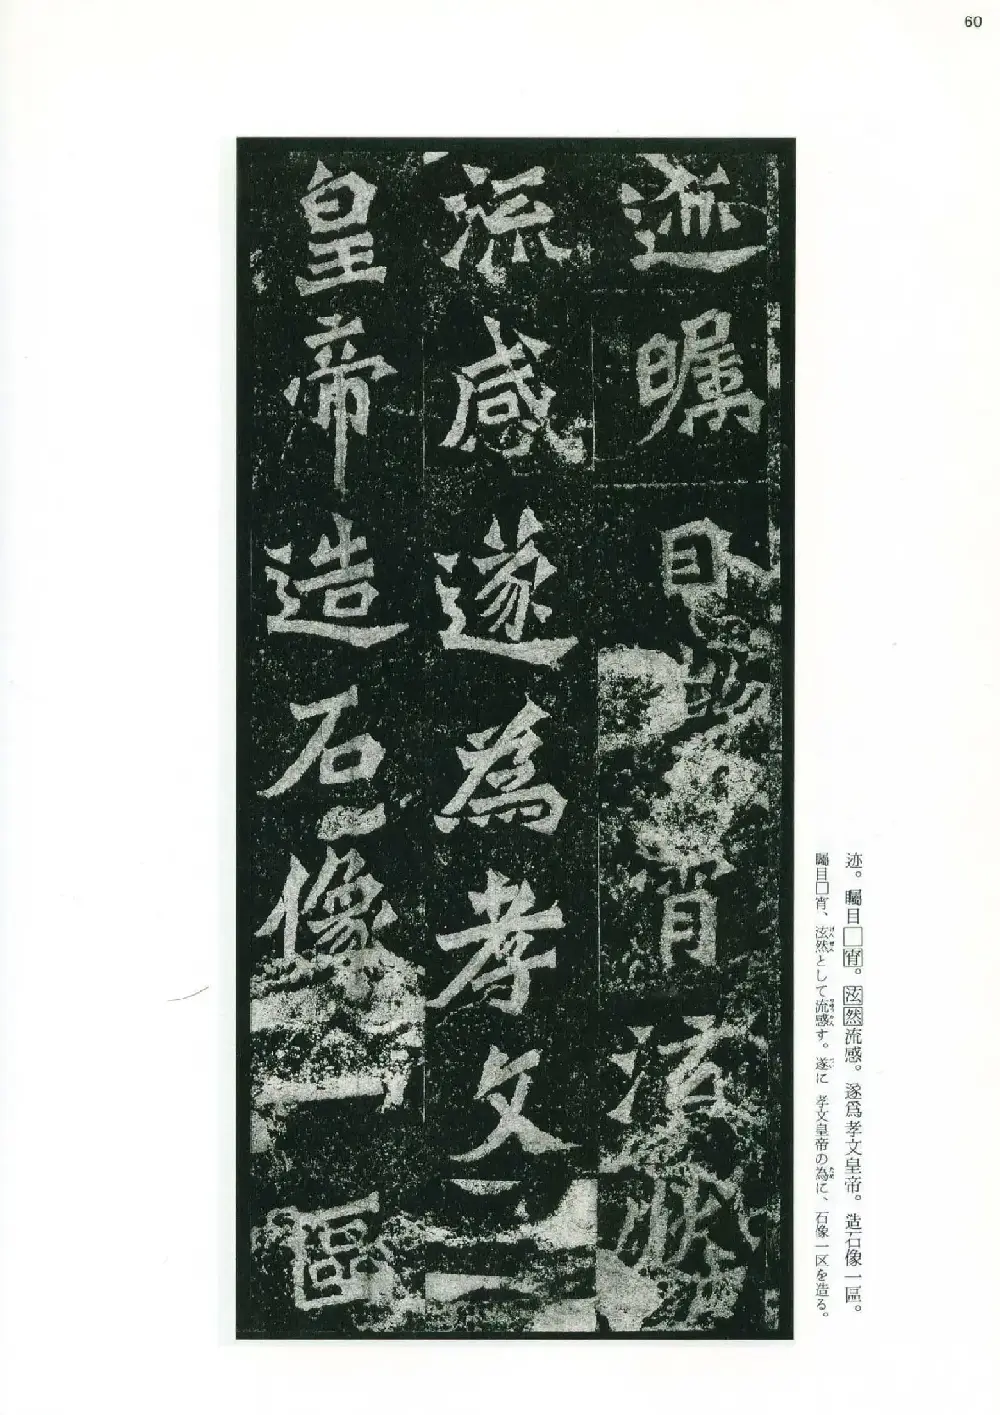 60
迹矚目宵泫然
流感遂為孝文
皇帝造石像一區
迹。矚目□宵。泫然流感。遂爲孝文皇帝。造石像一區。
矚目□宵、泫然として流感す。遂に 孝文皇帝の為に、石像一区を造る。